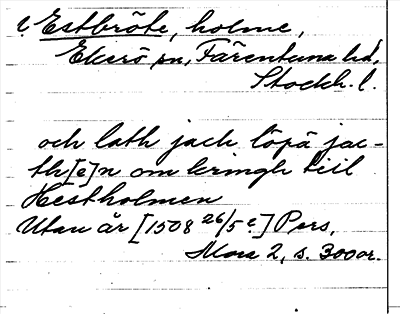 ? Estbröte, holme,
Ekerö sn, Färentuna hd,
Stockh. l.
och lath jach löpä jac-
th[e]n om kringh till
Hestholmen
Utan år [1508 26/5 c.] Pers.
Mora 2, s. 300 or.